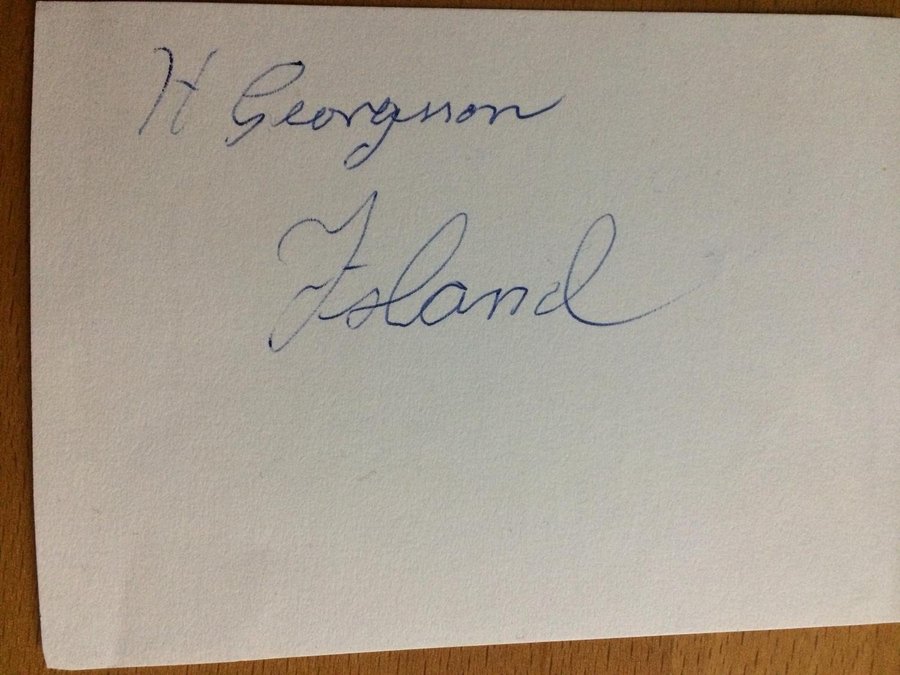 H Georgsson
Island